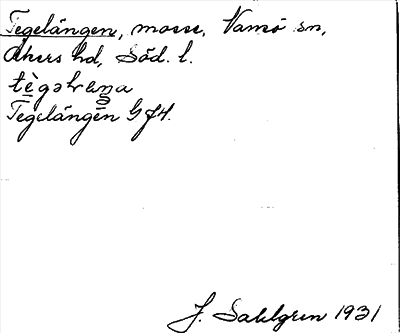 Tegelängen, mosse, Vansö sn,
Åkers hd, Söd. l.
Tegelängen GfH.
J. Sahlgren 1931